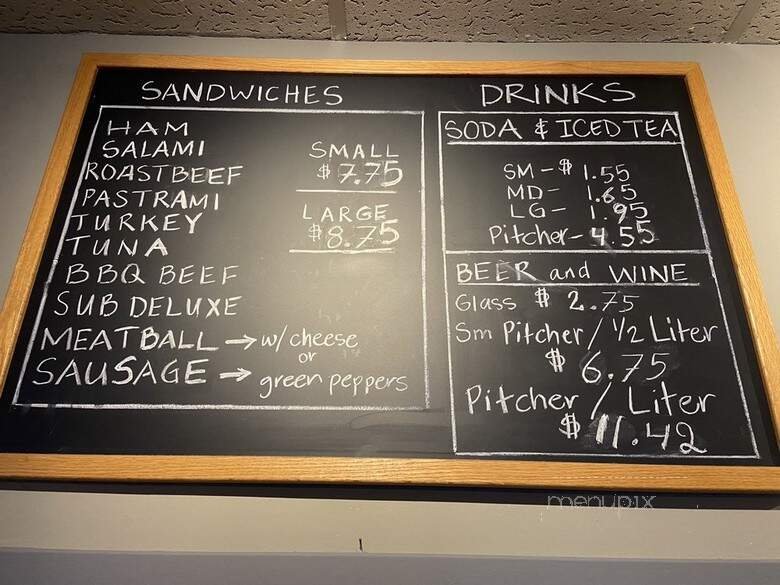 SANDWICHES
HAM
SALAMI
ROASTBEEF
PASTRAMI
TURKEY
TUNA
BBQ BEEF
SUB DELUXE
MEATBALL → w/ cheese
or
SAUSAGE → green peppers
SMALL
$7.75
LARGE
$8.75
DRINKS
SODA & ICED TEA
SM - $ 1.55
MD - 1.65
LG - 1.95
Pitcher - 4.55
BEER and WINE
Glass $ 2.75
Sm Pitcher / 1/2 Liter
$ 6.75
Pitcher / Liter
$ 11.42
menupix